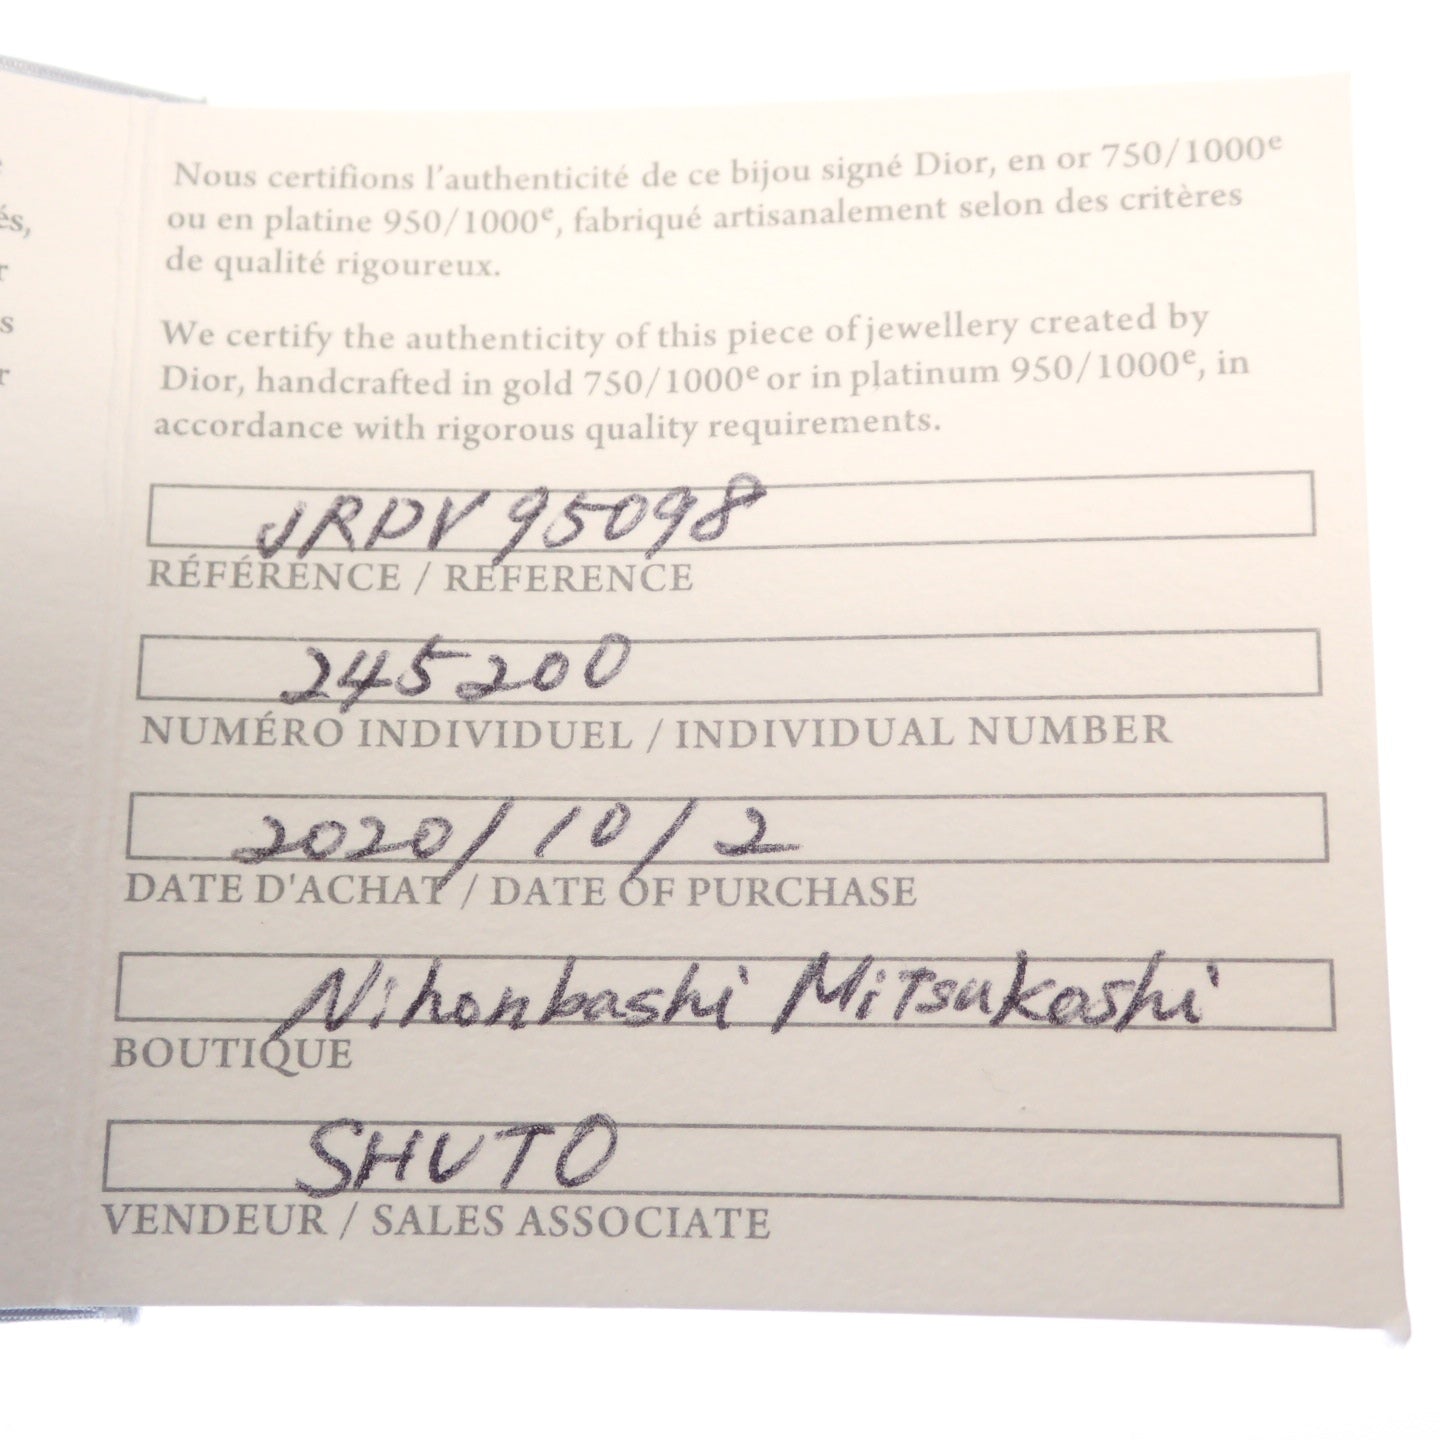 és,
r
s
r
Nous certifions l'authenticité de ce bijou signé Dior, en or 750/1000e
ou en platine 950/1000e, fabriqué artisanalement selon des critères
de qualité rigoureux.
We certify the authenticity of this piece of jewellery created by
Dior, handcrafted in gold 750/1000e or in platinum 950/1000e, in
accordance with rigorous quality requirements.
JRDV95098
RÉFÉRENCE / REFERENCE
245200
NUMÉRO INDIVIDUEL / INDIVIDUAL NUMBER
2020/10/2
DATE D'ACHAT / DATE OF PURCHASE
Nihonbashi Mitsukoshi
BOUTIQUE
SHUTO
VENDEUR / SALES ASSOCIATE